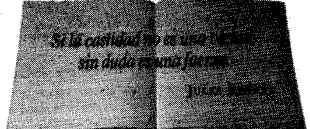 Si la castidad no es una virtud
sin duda es una fuerza.
JULES